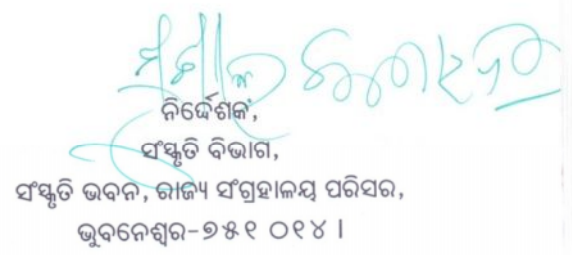 ନିର୍ଦ୍ଦେଶକ,
ସଂସ୍କୃତି ବିଭାଗ,
ସଂସ୍କୃତି ଭବନ, ରାଜ୍ୟ ସଂଗ୍ରହାଳୟ ପରିସର,
ଭୁବନେଶ୍ୱର-୭୫୧ ୦୧୪ ।